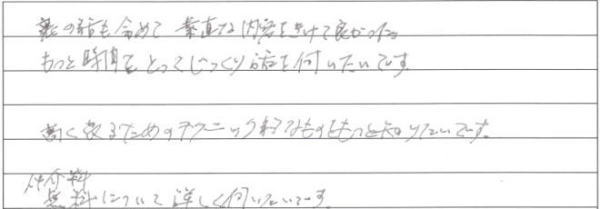 私の話も含めて 素直な内容をきけて良かった。
もっと時間をとってじっくり話を伺いたいです。
高く売るためのテクニック的なものをもっと知りたいです。
仲介料
無料について詳しく伺いたいです。